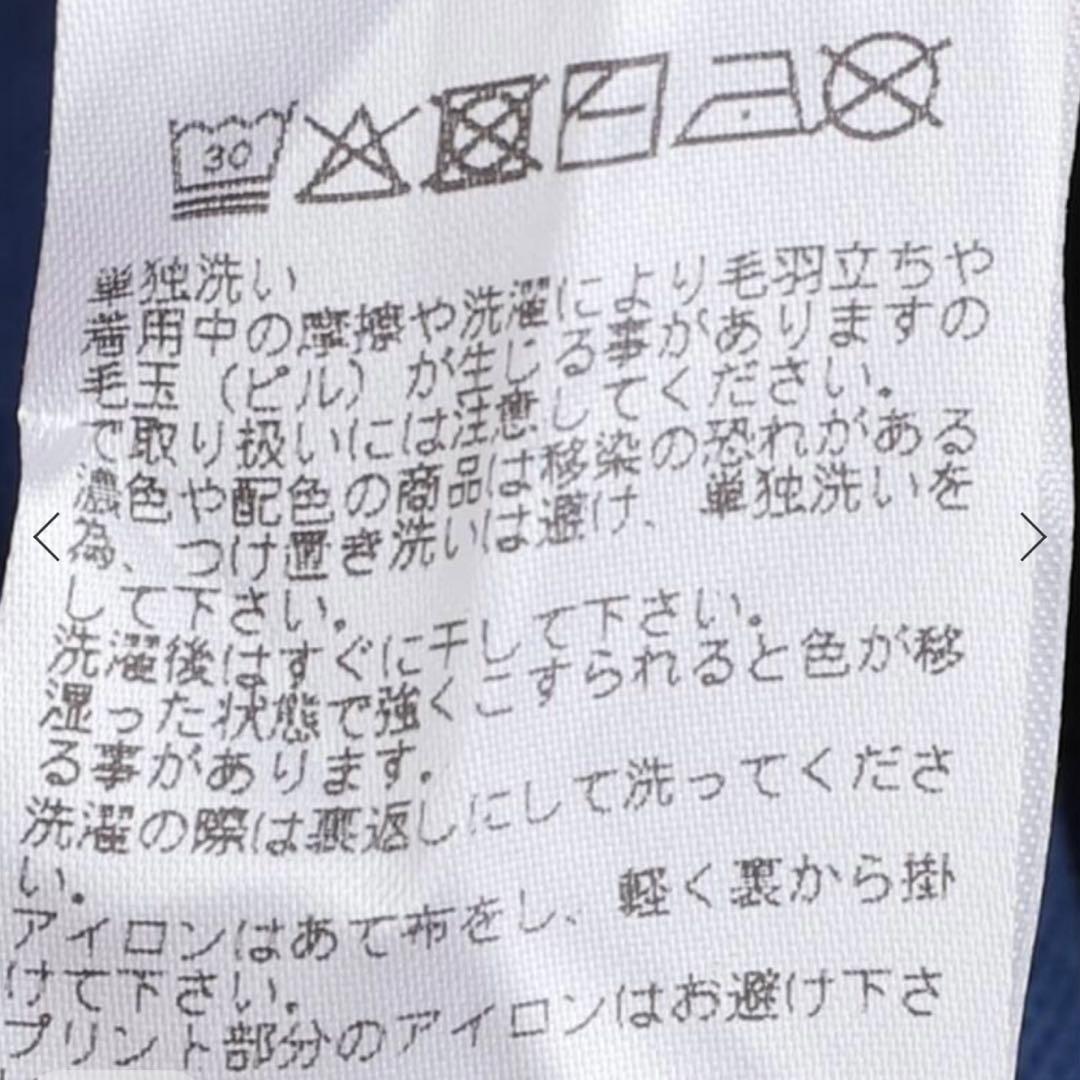 30
単独洗い
着用中の摩擦や洗濯により毛羽立ちや
毛玉（ピル）が生じる事がありますの
で取り扱いには注意してください。
濃色や配色の商品は移染の恐れがある
為、つけ置き洗いは避け、単独洗いを
して下さい。
洗濯後はすぐに干して下さい。
湿った状態で強くこすられると色が移
る事があります。
洗濯の際は裏返しにして洗ってくださ
い。
アイロンはあて布をし、軽く裏から掛
けて下さい。
プリント部分のアイロンはお避け下さ